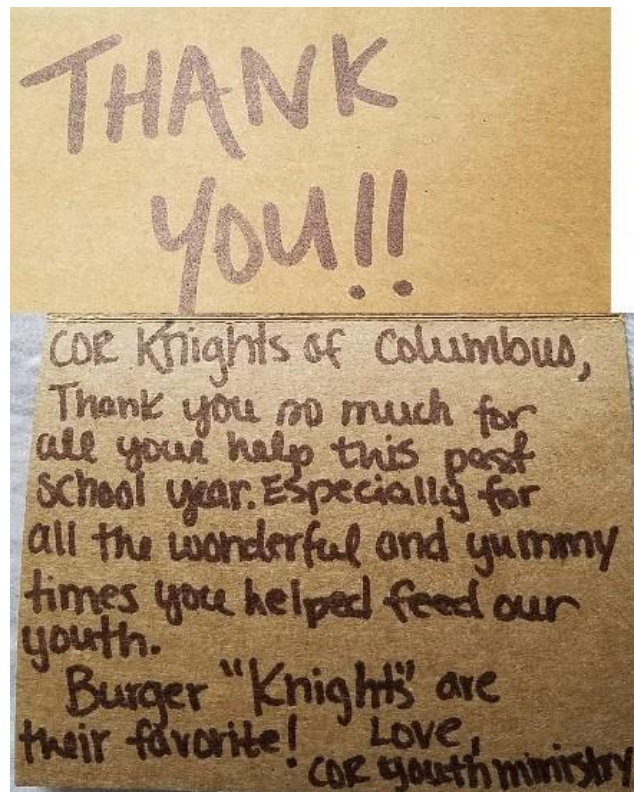 THANK
YOU!!
COR Knights of Columbus,
Thank you so much for
all your help this past
school year. Especially for
all the wonderful and yummy
times you helped feed our
youth.
Burger "Knights" are
their favorite! Love,
COR youth ministry